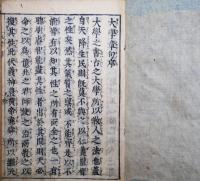 大學章句序
大學之書古之大學所以教人之法也蓋
自天降生民則既莫不與之以仁義禮智
之性矣然其氣質之稟或不能齊是以不
能皆有以知其性之所有而全之也一有
聰明睿智能盡其性者出於其間則天必
命之以為億兆之君師使之治而教之以
復其性此伏羲神農黃帝堯舜所以繼天